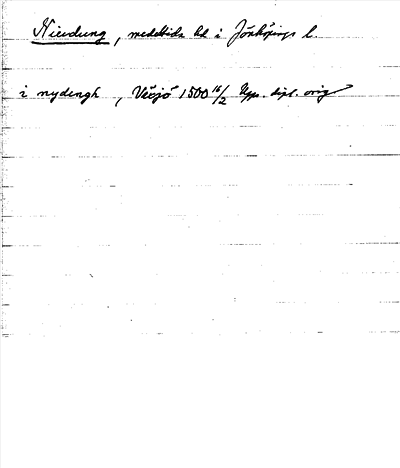 Niudung, medeltida bd i Jönköpings l.
i nydengh, Växjö 1500 16/2 Upps. dipl. orig